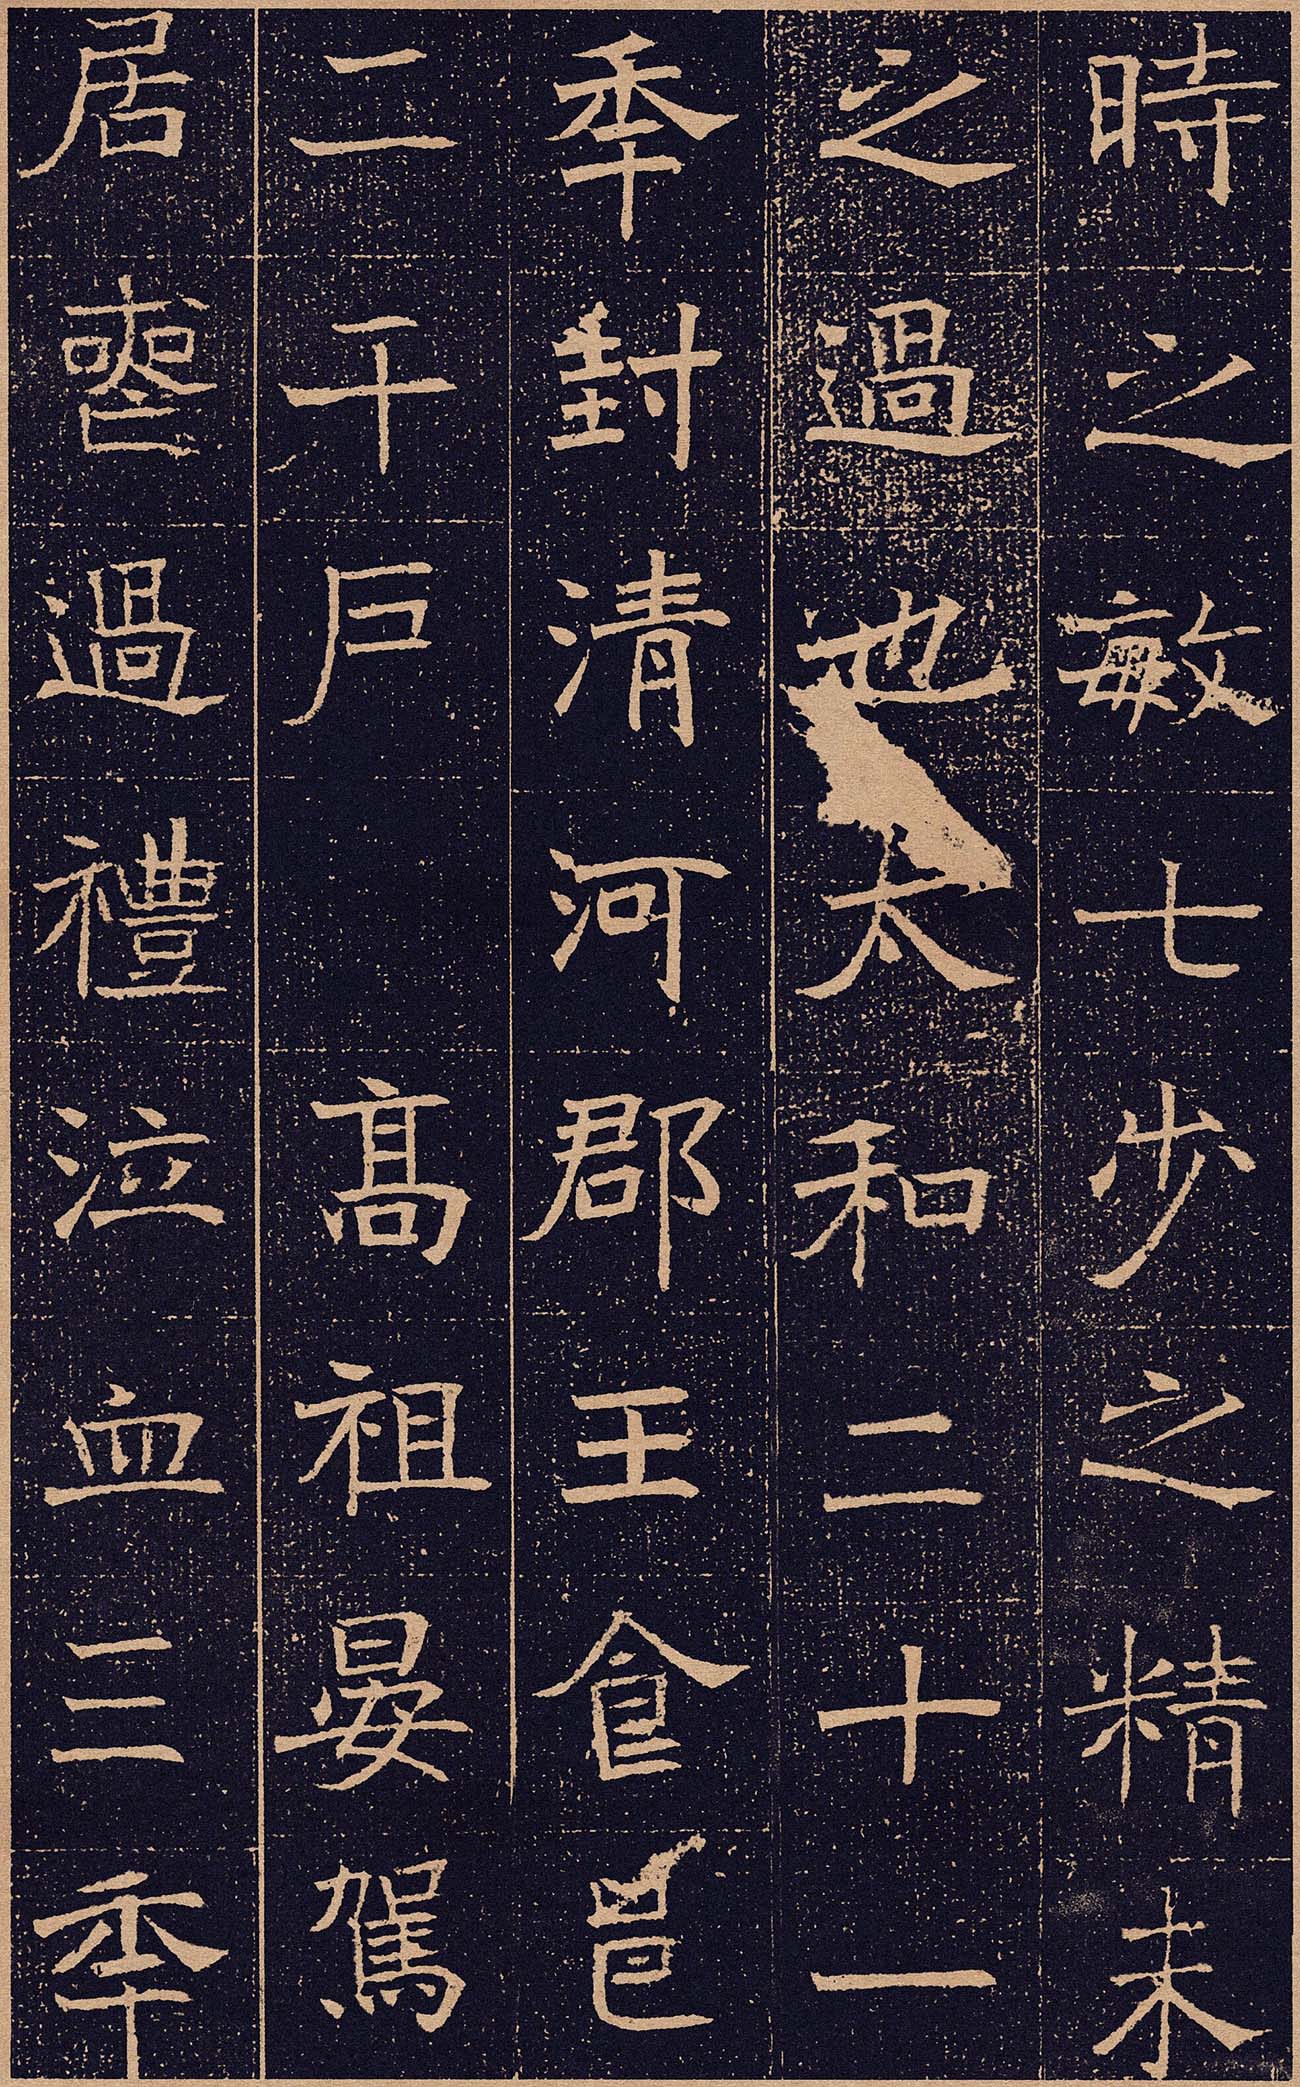 時之敏七步之精未
之過也太和二十一
秊封清河郡王食邑
二千戶高祖晏駕
居喪過禮泣血三秊